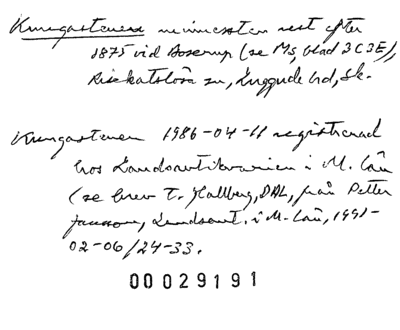 Kungastenen minnessten rest efter
1875 vid Boserup (se Ms, blad 3C3E),
Risekatslösa sn, Luggude hd, Sk.
Kungastenen 1986-04-11 registrerad
hos Landsantikvarien i M. län
(se brev t. Hallberg, DAL, från Petter
Jansson, Landsant. i M. län, 1991-
02-06/24-33.
00029191